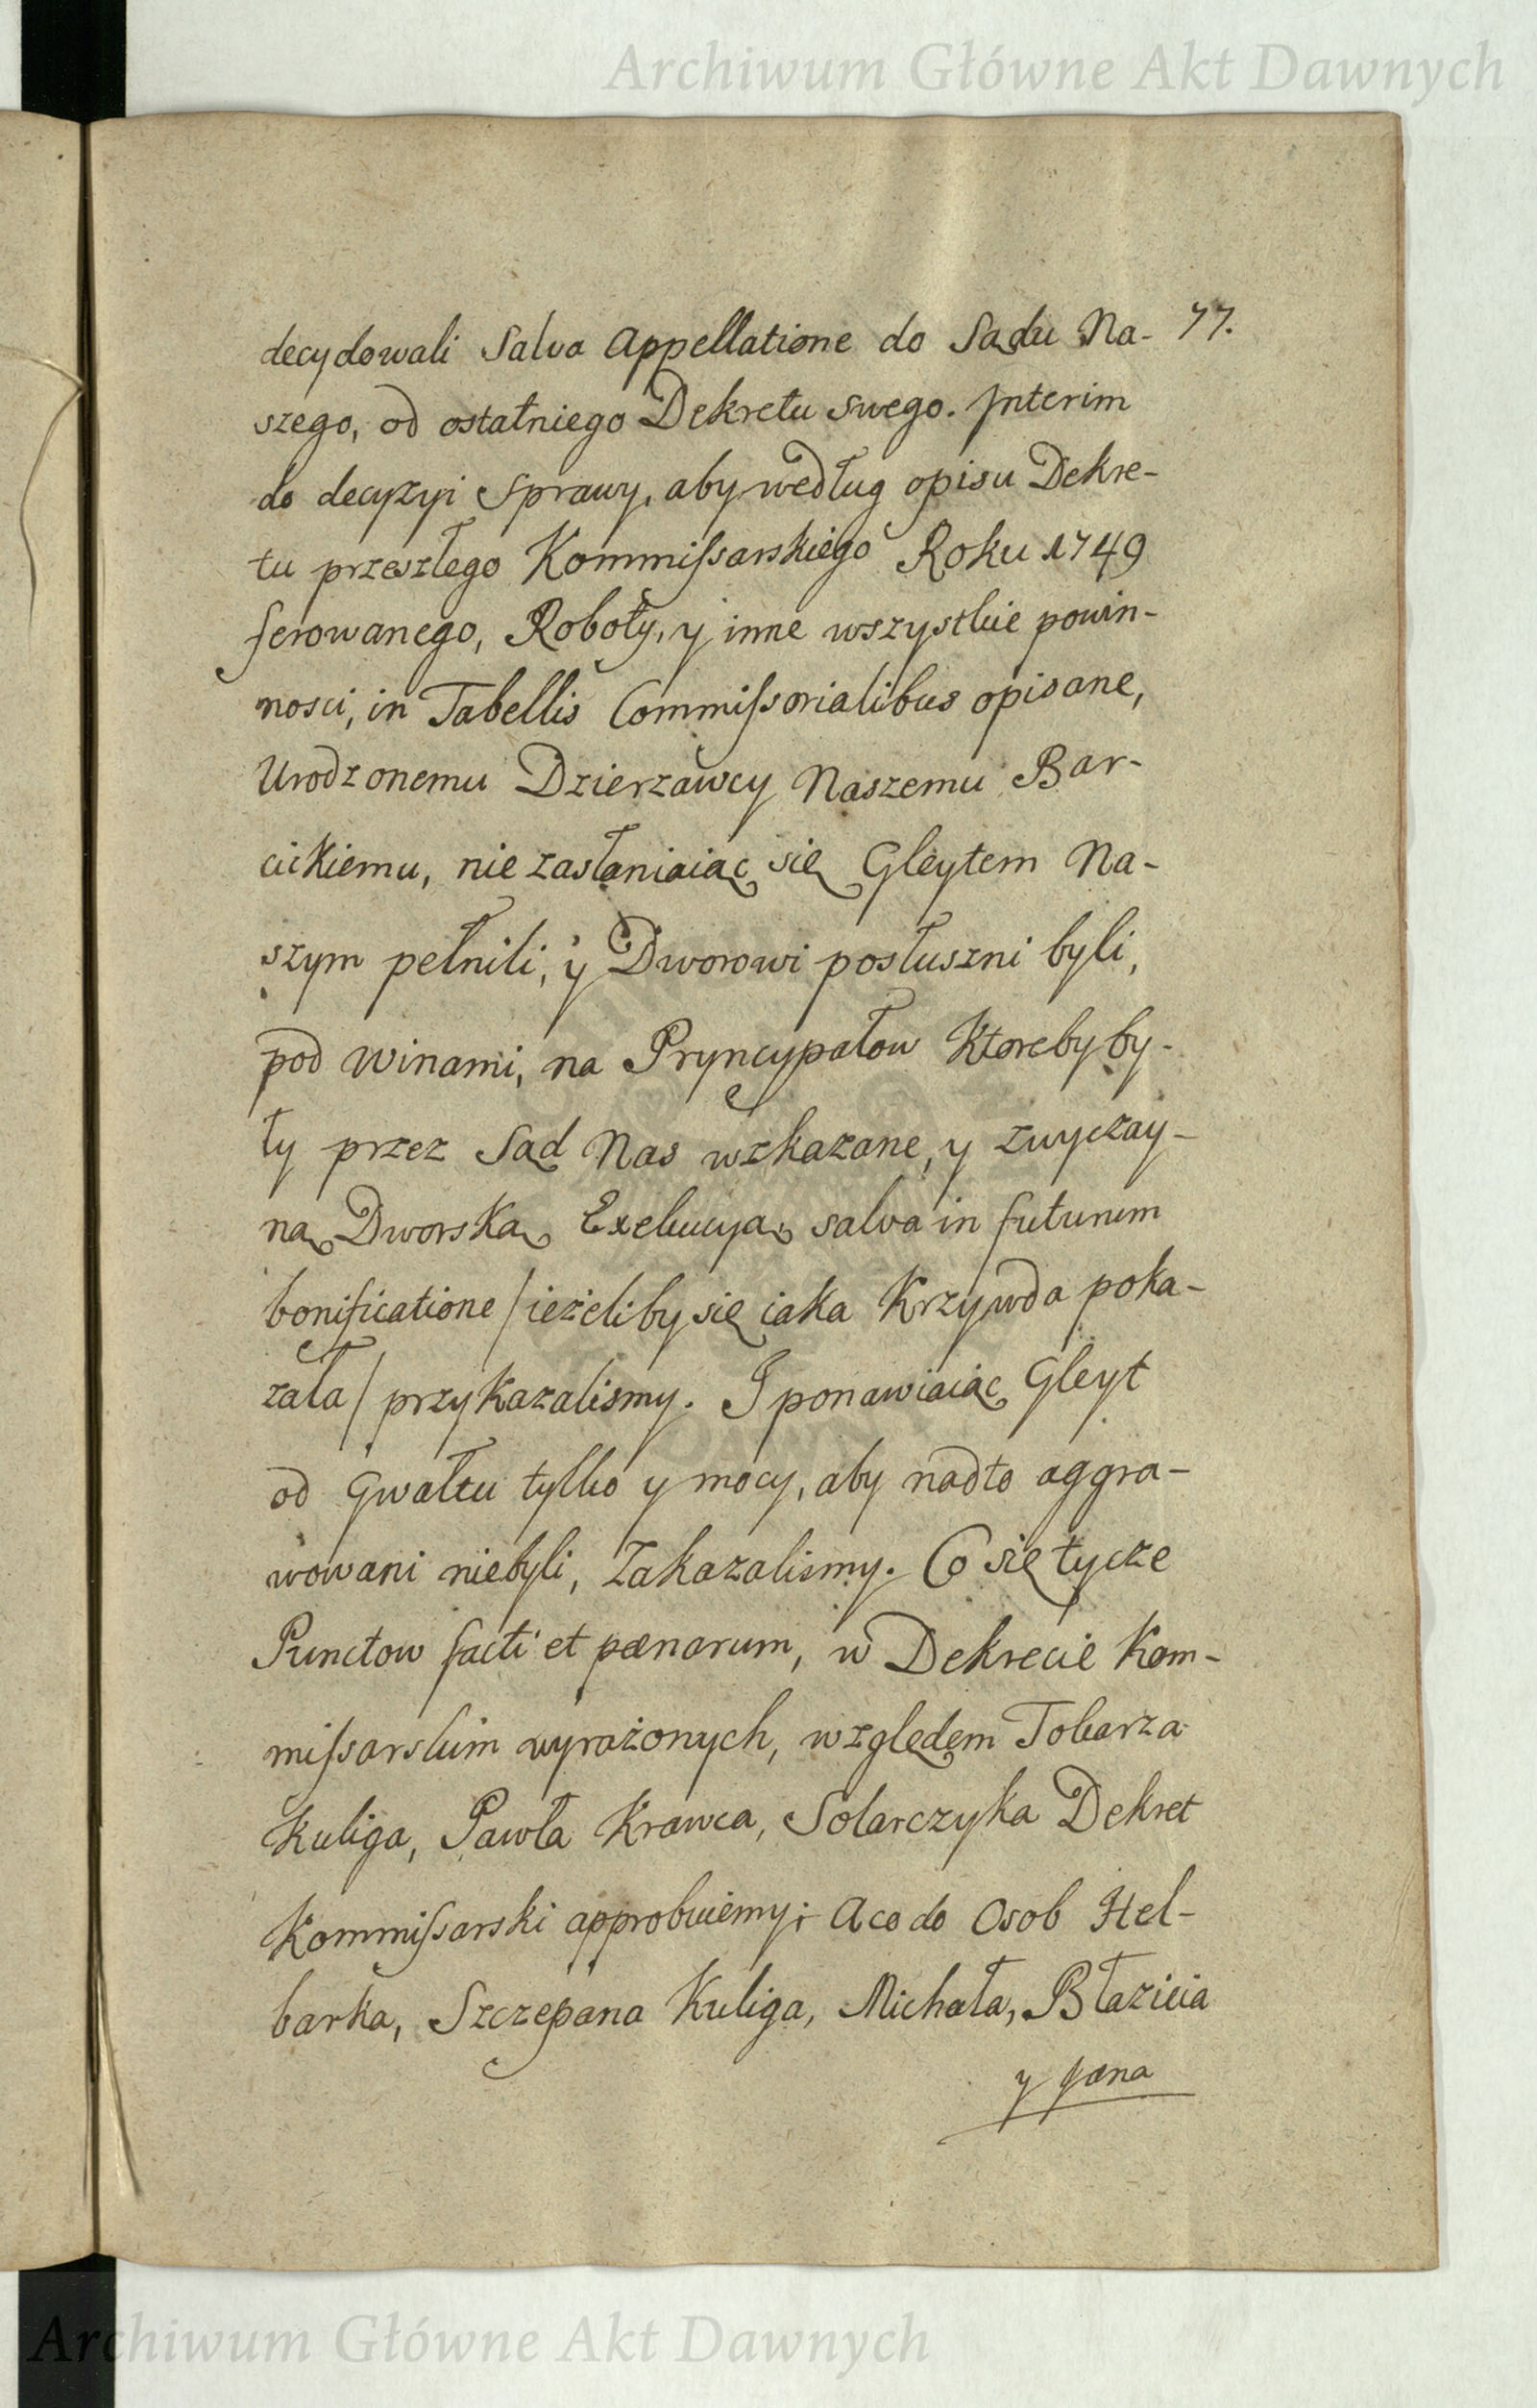 Archiwum Główne Akt Dawnych
77.
decydowali Salva Appellatione do Sądu Na-
szego, od ostatniego Dekretu swego. Interim
do decyzyi Sprawy, aby według opisu Dekre-
tu przeszłego Kommissarskiego Roku 1749
ferowanego, Roboty, y inne wszystkie powin-
nosci, in Tabellis Commissorialibus opisane,
Urodzonemu Dzierzawcy Naszemu Bar-
cickiemu, nie zasłaniaiąc się Gleytem Na-
szym pełnili, y Dworowi posłuszni byli,
pod winami, na Pryncypałow Ktoreby by-
ły przez Sąd Nas wskazane, y zwyczay-
ną Dworską Exekucyą, salva in futurum
bonificatione / ieżeliby się iaka Krzywda poka-
zała / przykazalismy. I ponawiaiąc Gleyt
od Gwałtu tylko y mocy, aby nadto aggra-
wowani niebyli, Zakazalismy. Co się tycze
Punctow facti et pœnarum, w Dekrecie Kom-
missarskim wyrażonych, względem Tokarza
Kuliga, Pawła Krawca, Solarczyka Dekret
Kommissarski approbuiemy; A co do Osob Hel-
barka, Szczepana Kuliga, Michała, Błazicia
y Jana
Archiwum Główne Akt Dawnych